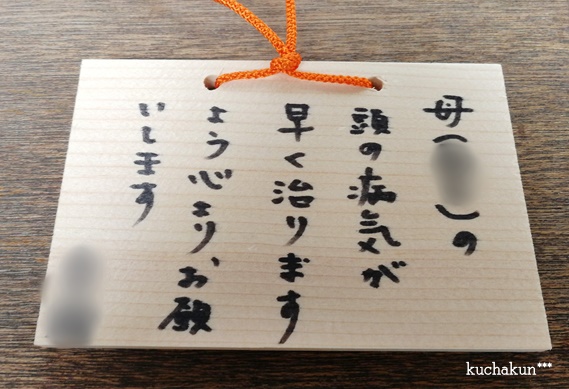 母(　)の
頭の病気が
早く治ります
よう心よりお願
いします
kuchakun***